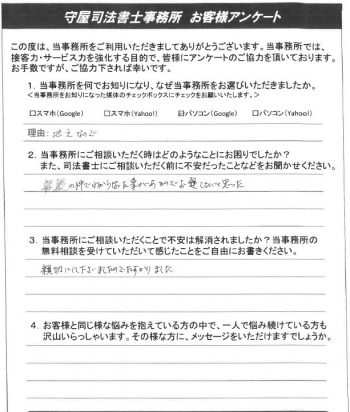 守屋司法書士事務所 お客様アンケート
この度は、当事務所をご利用いただきましてありがとうございます。当事務所では、
接客力・サービス力を強化する目的で、皆様にアンケートのご協力を頂いております。
お手数ですが、ご協力下されば幸いです。
1. 当事務所を何でお知りになり、なぜ当事務所をお選びいただきましたか。
<当事務所をお知りになった媒体のチェックボックスにチェックをお願いいたします。>
□スマホ(Google) □スマホ(Yahoo!) ☑パソコン(Google) □パソコン(Yahoo!)
理由:
2. 当事務所にご相談いただく時はどのようなことにお困りでしたか?
また、司法書士にご相談いただく前に不安だったことなどをお聞かせください。
3. 当事務所にご相談いただくことで不安は解消されましたか?当事務所の
無料相談を受けていただいて感じたことをご自由にお書きください。
親切にして下さいましたのでたすかりました
4. お客様と同じ様な悩みを抱えている方の中で、一人で悩み続けている方も
沢山いらっしゃいます。その様な方に、メッセージをいただけますでしょうか。